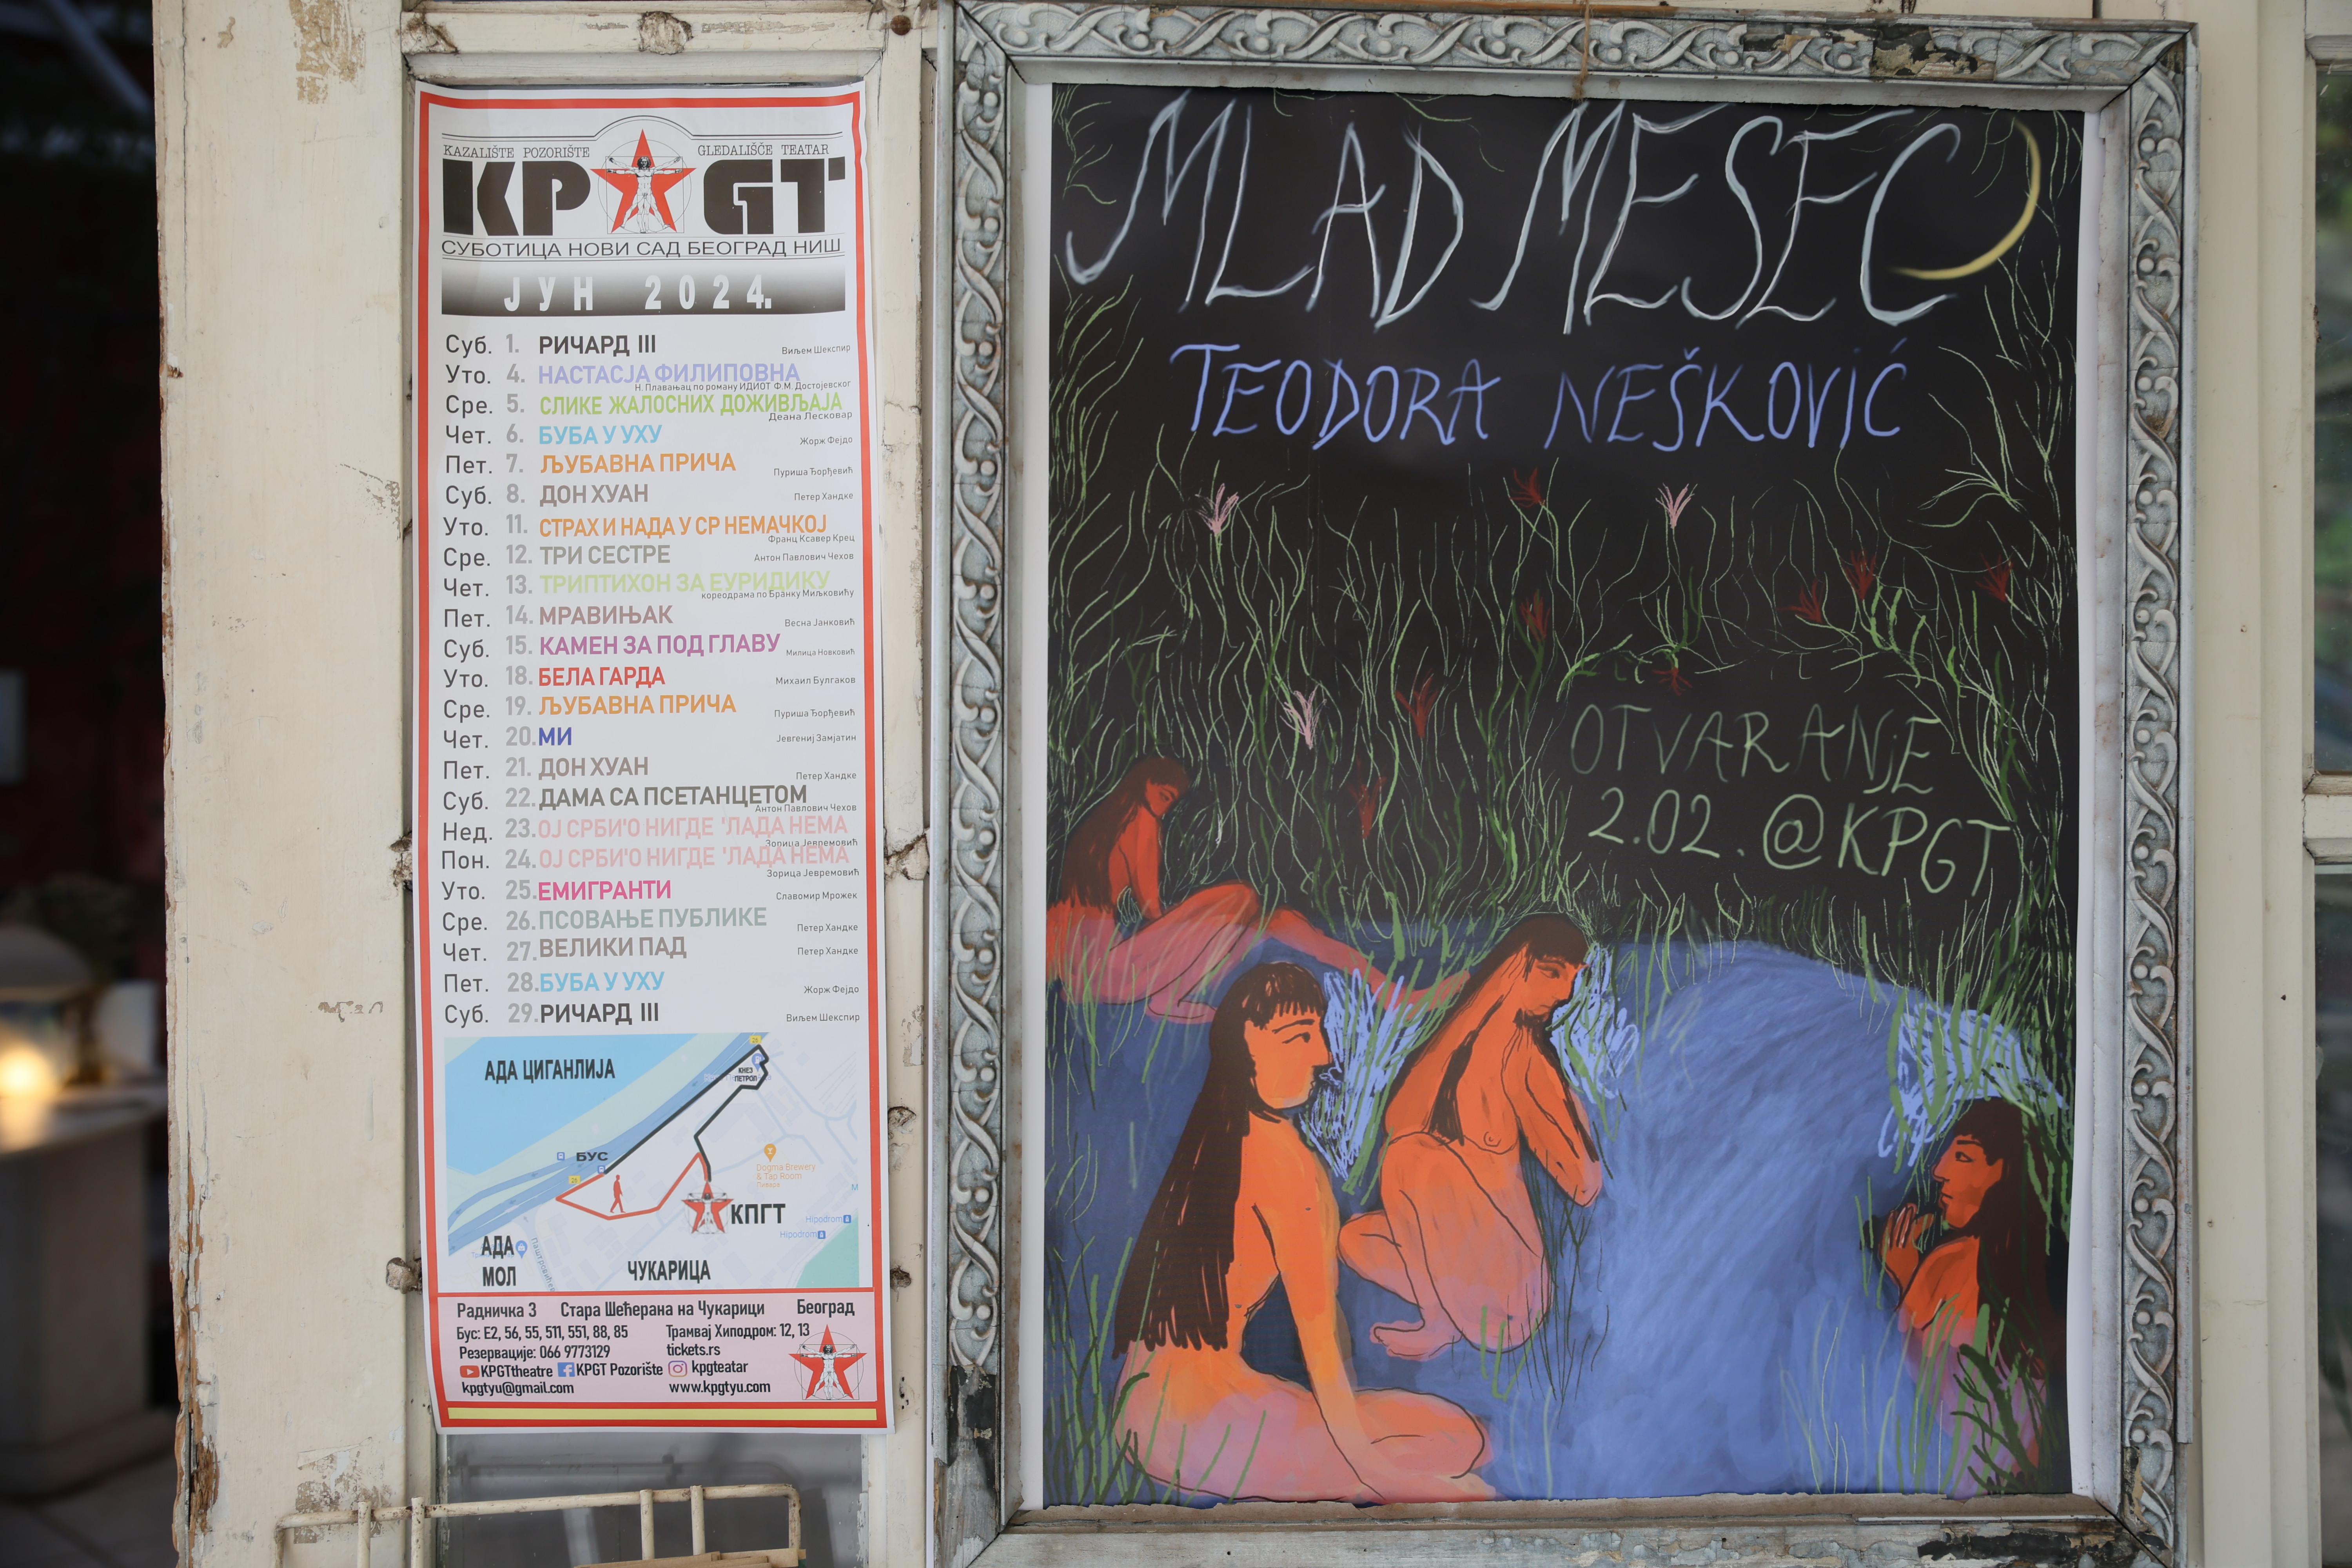 KAZALIŠTE POZORIŠTE GLEDALIŠČE TEATAR
KPGT
СУБОТИЦА НОВИ САД БЕОГРАД НИШ
ЈУН 2024.
Суб. 1. РИЧАРД III Виљем Шекспир
Уто. 4. НАСТАСЈА ФИЛИПОВНА
Н. Плавањац по роману ИДИОТ Ф.М. Достојевског
Сре. 5. СЛИКЕ ЖАЛОСНИХ ДОЖИВЉАЈА
Деана Лесковар
Чет. 6. БУБА У УХУ Жорж Фејдо
Пет. 7. ЉУБАВНА ПРИЧА Пуриша Ђорђевић
Суб. 8. ДОН ХУАН Петер Хандке
Уто. 11. СТРАХ И НАДА У СР НЕМАЧКОЈ
Франц Ксавер Крец
Сре. 12. ТРИ СЕСТРЕ Антон Павлович Чехов
Чет. 13. ТРИПТИХОН ЗА ЕУРИДИКУ
кореодрама по Бранку Миљковићу
Пет. 14. МРАВИЊАК Весна Јанковић
Суб. 15. КАМЕН ЗА ПОД ГЛАВУ Милица Новковић
Уто. 18. БЕЛА ГАРДА Михаил Булгаков
Сре. 19. ЉУБАВНА ПРИЧА Пуриша Ђорђевић
Чет. 20. МИ Јевгениј Замјатин
Пет. 21. ДОН ХУАН Петер Хандке
Суб. 22. ДАМА СА ПСЕТАНЦЕТОМ
Антон Павлович Чехов
Нед. 23. ОЈ СРБИ'О НИГДЕ 'ЛАДА НЕМА
Зорица Јевремовић
Пон. 24. ОЈ СРБИ'О НИГДЕ 'ЛАДА НЕМА
Зорица Јевремовић
Уто. 25. ЕМИГРАНТИ Славомир Мрожек
Сре. 26. ПСОВАЊЕ ПУБЛИКЕ Петер Хандке
Чет. 27. ВЕЛИКИ ПАД Петер Хандке
Пет. 28. БУБА У УХУ Жорж Фејдо
Суб. 29. РИЧАРД III Виљем Шекспир
АДА ЦИГАНЛИЈА
КНЕЗ
ПЕТРОЛ
БУС
Dogma Brewery
& Tap Room
Пивара
КПГТ
Hipodrom
Hipodrom
АДА
МОЛ
ЧУКАРИЦА
Радничка 3 Стара Шећерана на Чукарици Београд
Бус: Е2, 56, 55, 511, 551, 88, 85 Трамвај Хиподром: 12, 13
Резервације: 066 9773129 tickets.rs
KPGTtheatre KPGT Pozorište kpgteatar
kpgtyu@gmail.com www.kpgtyu.com
MLAD MESEC
TEODORA NEŠKOVIĆ
OTVARANJE
2.02. @KPGT